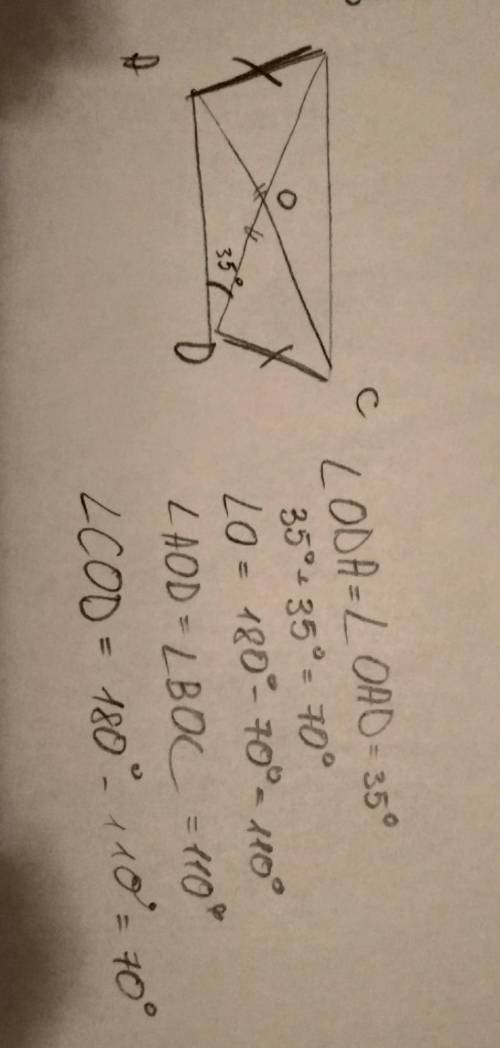 A
O
35°
D
C
∠ODA = ∠OAD = 35°
35° + 35° = 70°
∠O = 180° - 70° = 110°
∠AOD = ∠BOC = 110°
∠COD = 180° - 110° = 70°